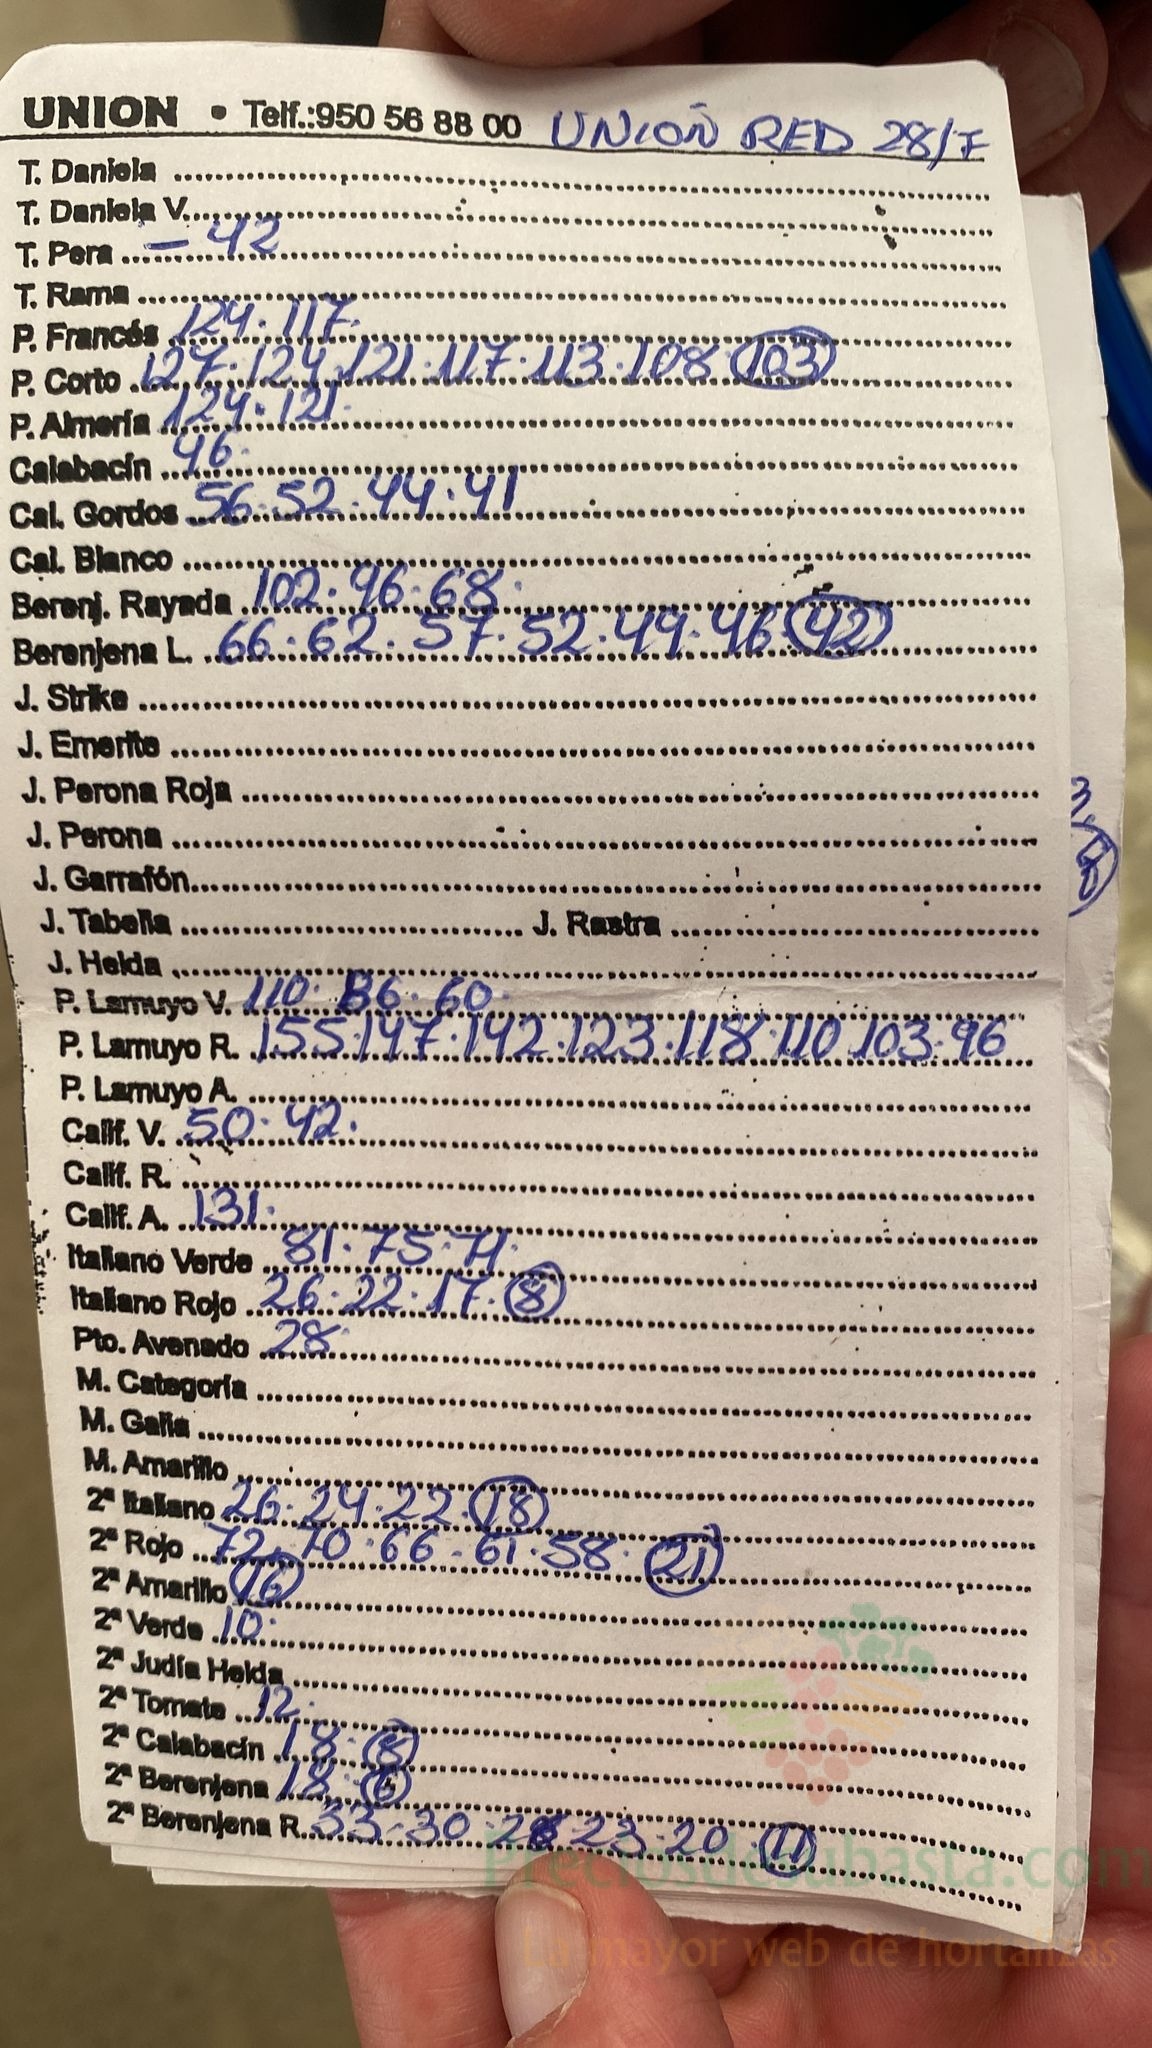 UNION • Telf.:950 56 88 00 UNIOÑ RED 28/F
T. Daniela
T. Daniela V.
T. Pera - 42
T. Rama
P. Francés 124.117.
P. Corto 127.124.121.117.113.108 103
P. Almería 124.121.
Calabacín 46.
Cal. Gordos 56.52.44.41
Cal. Blanco
Berenj. Rayada 102.96.68.
Berenjena L. 66.62.57.52.49.46 42
J. Strike
J. Emerite
J. Perona Roja
J. Perona
J. Garrafón
J. Tabella J. Rastra
J. Helda
P. Lamuyo V. 110.86.60.
P. Lamuyo R. 155.147.142.123.118.110 103.96
P. Lamuyo A.
Calif. V. 50.42.
Calif. R.
Calif. A. 131.
Italiano Verde 81.75.71.
Italiano Rojo 26.22.17.8
Pto. Avenado 28.
M. Categoría
M. Galia
M. Amarillo
2ª Italiano 26.24.22.18
2ª Rojo 72.70.66.61.58.21
2ª Amarillo 16
2ª Verde 10.
2ª Judía Helda
2ª Tomate 12.
2ª Calabacín 18.8
2ª Berenjena 18.6
2ª Berenjena R. 33.30 23.20.11
Preciosdesubasta.com
La mayor web de hortalizas